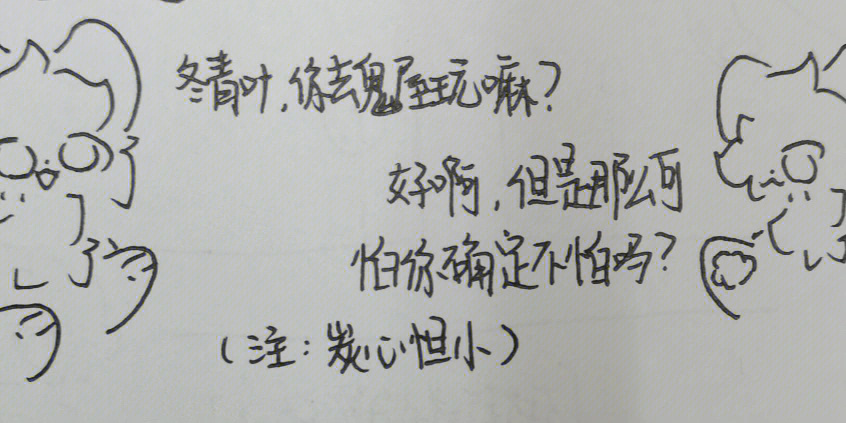 冬青叶，你去鬼屋玩嘛？
好啊，但是那么可
怕你确定不怕吗？
（注：炭心怛小）